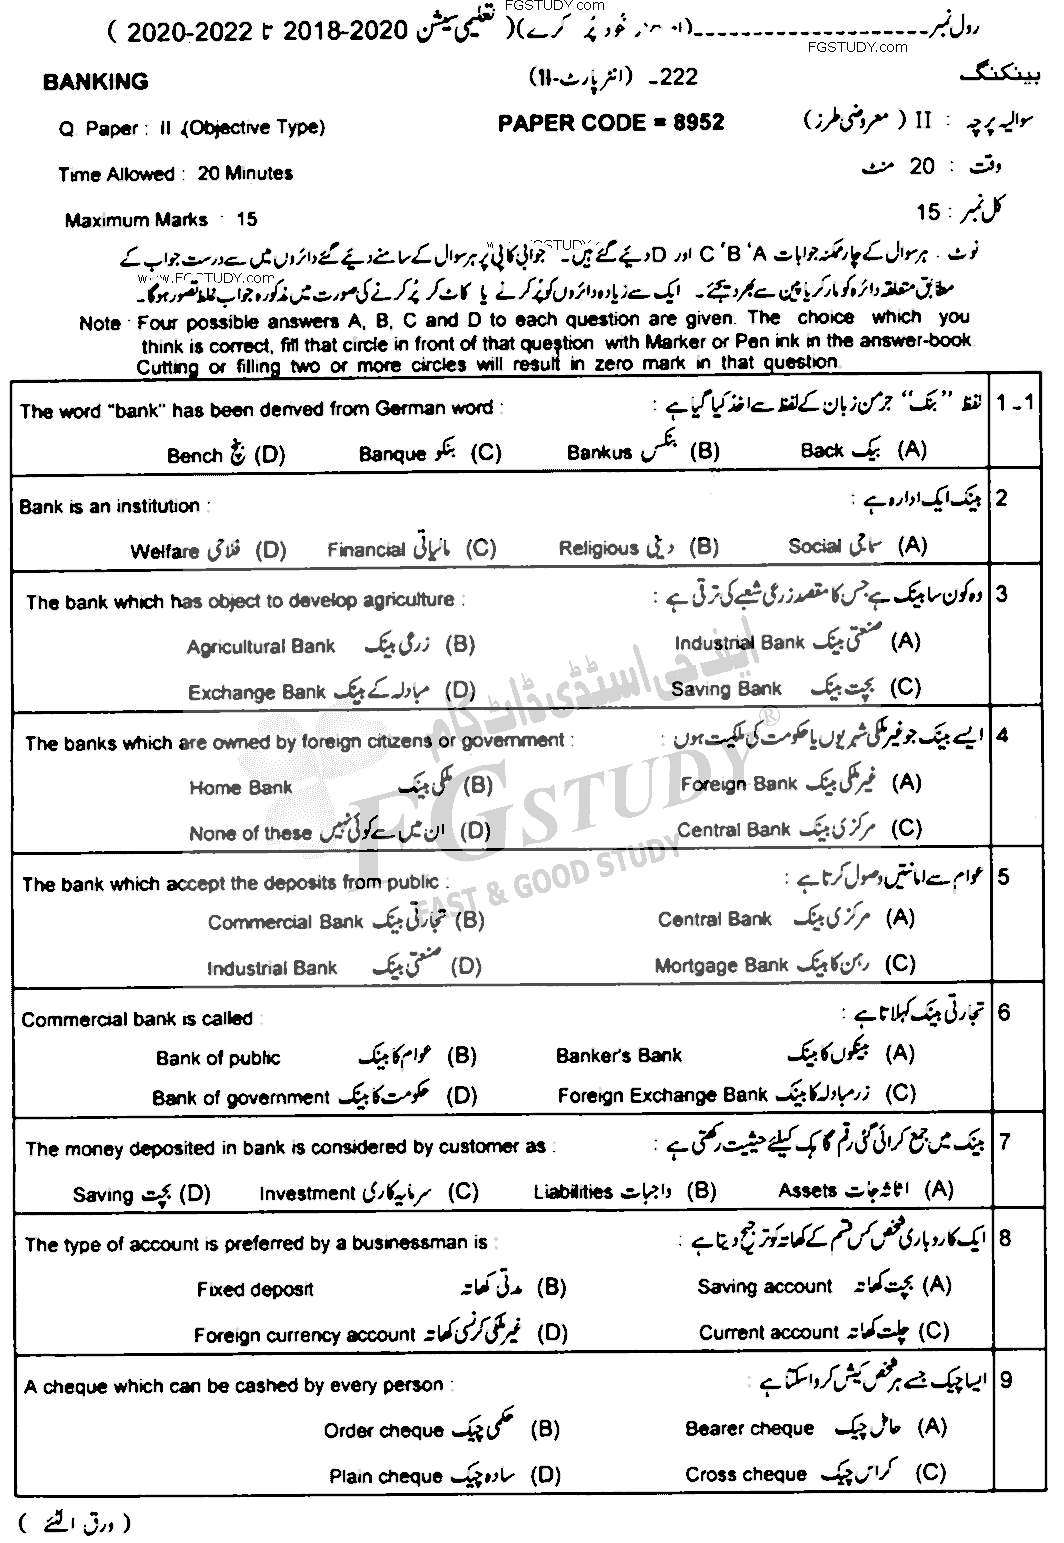 FGSTUDY.com
رول نمبر (امیدوار خود پُر کرے) (تعلیمی سیشن 2018-2020 تا 2020-2022)
FGSTUDY.com
BANKING 222ـ (انٹر پارٹ-II) بینکنگ
Q Paper : II (Objective Type) PAPER CODE = 8952 سوالیہ پرچہ : II (معروضی طرز)
Time Allowed : 20 Minutes وقت : 20 منٹ
Maximum Marks : 15 کل نمبر : 15
نوٹ ۔ ہر سوال کے چار ممکنہ جوابات A ' B ' C اور D دیے گئے ہیں۔ جوابی کاپی پر ہر سوال کے سامنے دیے گئے دائروں میں سے درست جواب کے
FGSTUDY.com
www.FGSTUDY.com
مطابق متعلقہ دائرہ کو مارکر یا پین سے بھر دیجئے۔ ایک سے زیادہ دائروں کو پُر کرنے یا کاٹ کر پُر کرنے کی صورت میں مذکورہ جواب غلط تصور ہوگا۔
Note : Four possible answers A, B, C and D to each question are given. The choice which you
think is correct, fill that circle in front of that question with Marker or Pen ink in the answer-book.
Cutting or filling two or more circles will result in zero mark in that question.
The word "bank" has been derived from German word : لفظ "بنک" جرمن زبان کے لفظ سے اخذ کیا گیا ہے : 1-1
Bench بنچ (D) Banque بنکو (C) Bankus بنکس (B) Back بیک (A)
Bank is an institution : بینک ایک ادارہ ہے : 2
Welfare فلاحی (D) Financial مالیاتی (C) Religious دینی (B) Social سماجی (A)
The bank which has object to develop agriculture : وہ کون سا بینک ہے جس کا مقصد زرعی شعبے کی ترقی ہے : 3
Agricultural Bank زرعی بینک (B) Industrial Bank صنعتی بینک (A)
Exchange Bank مبادلہ کے بینک (D) Saving Bank بچت بینک (C)
The banks which are owned by foreign citizens or government : ایسے بینک جو غیر ملکی شہریوں یا حکومت کی ملکیت ہوں : 4
Home Bank ملکی بینک (B) Foreign Bank غیر ملکی بینک (A)
None of these ان میں سے کوئی نہیں (D) Central Bank مرکزی بینک (C)
The bank which accept the deposits from public : عوام سے امانتیں وصول کرتا ہے : 5
Commercial Bank تجارتی بینک (B) Central Bank مرکزی بینک (A)
Industrial Bank صنعتی بینک (D) Mortgage Bank رہن کا بینک (C)
Commercial bank is called : تجارتی بینک کہلاتا ہے : 6
Bank of public عوام کا بینک (B) Banker's Bank بینکوں کا بینک (A)
Bank of government حکومت کا بینک (D) Foreign Exchange Bank زرمبادلہ کا بینک (C)
The money deposited in bank is considered by customer as : بینک میں جمع کرائی گئی رقم گاہک کیلئے حیثیت رکھتی ہے : 7
Saving بچت (D) Investment سرمایہ کاری (C) Liabilities واجبات (B) Assets اثاثہ جات (A)
The type of account is preferred by a businessman is : ایک کاروباری شخص کس قسم کے کھاتہ کو ترجیح دیتا ہے : 8
Fixed deposit مدتی کھاتہ (B) Saving account بچت کھاتہ (A)
Foreign currency account غیر ملکی کرنسی کھاتہ (D) Current account چلت کھاتہ (C)
A cheque which can be cashed by every person : ایسا چیک جسے ہر شخص کیش کروا سکتا ہے : 9
Order cheque حکمی چیک (B) Bearer cheque حامل چیک (A)
Plain cheque سادہ چیک (D) Cross cheque کراس چیک (C)
(ورق الٹئے)
ایف جی اسٹڈی ڈاٹ کام
FGSTUDY ®
FAST & GOOD STUDY